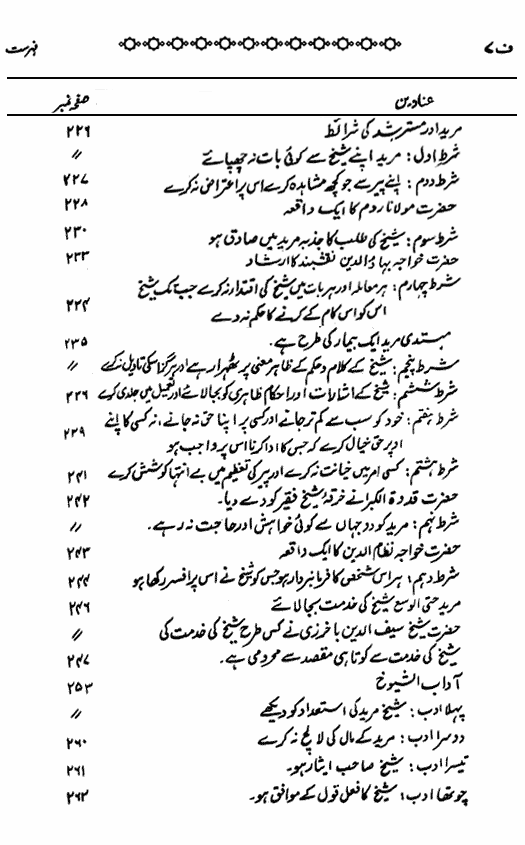 ف ۷ فہرست
عناوین صفحہ نمبر
مرید اور مسترشد کی شرائط ۲۲۶
شرط اول: مرید اپنے شیخ سے کوئی بات نہ چھپائے 〃
شرط دوم: اپنے پیر سے جو کچھ مشاہدہ کرے اس پر اعتراض نہ کرے ۲۲۷
حضرت مولانا روم کا ایک واقعہ ۲۲۸
شرط سوم: شیخ کی طلب کا جذبہ مرید میں صادق ہو ۲۳۰
حضرت خواجہ بہاؤالدین نقشبند کا ارشاد ۲۳۳
شرط چہارم: ہر معاملہ اور ہر بات میں شیخ کی اقتدار نہ کرے جب تک شیخ
اس کو اس کام کے کرنے کا حکم نہ دے ۲۳۴
مبتدی مرید ایک بیمار کی طرح ہے۔ ۲۳۵
شرط پنجم: شیخ کے کلام و حکم کے ظاہر معنی پر ٹھہرا رہے اور ہرگز اسکی تاویل نہ کرے 〃
شرط ششم: شیخ کے اشارات اور احکام ظاہری کو بجا لائے اور تعمیل میں جلدی کرے ۲۳۶
شرط ہفتم: خود کو سب سے کم تر جانے اور کسی پر اپنا حق نہ جانے، نہ کسی کا اپنے
اوپر حق خیال کرے کہ جس کا ادا کرنا اس پر واجب ہو ۲۳۹
شرط ہشتم: کسی امر میں خیانت نہ کرے اور پیر کی تعظیم میں بے انتہا کوشش کرے ۲۴۱
حضرت قدوۃ الکبرانے خرقہ شیخ فقیر کو دے دیا۔ ۲۴۲
شرط نہم: مرید کو دو جہاں سے کوئی خواہش اور حاجت نہ رہے۔ 〃
حضرت خواجہ نظام الدین کا ایک واقعہ ۲۴۳
شرط دہم: ہر اس شخص کا فرمانبردار ہو جس کو شیخ نے اس پر افسر رکھا ہو ۲۴۴
مرید حتی الوسع شیخ کی خدمت بجا لائے ۲۴۶
حضرت شیخ سیف الدین باخرزی نے کس طرح شیخ کی خدمت کی 〃
شیخ کی خدمت سے کوتاہی مقصد سے محرومی ہے۔ ۲۴۷
آداب الشیوخ ۲۵۳
پہلا ادب: شیخ مرید کی استعداد کو دیکھے 〃
دوسرا ادب: مرید کے مال کی لالچ نہ کرے ۲۶۰
تیسرا ادب: شیخ صاحب ایثار ہو۔ ۲۶۱
چوتھا ادب: شیخ کا فعل قول کے موافق ہو۔ ۲۶۲